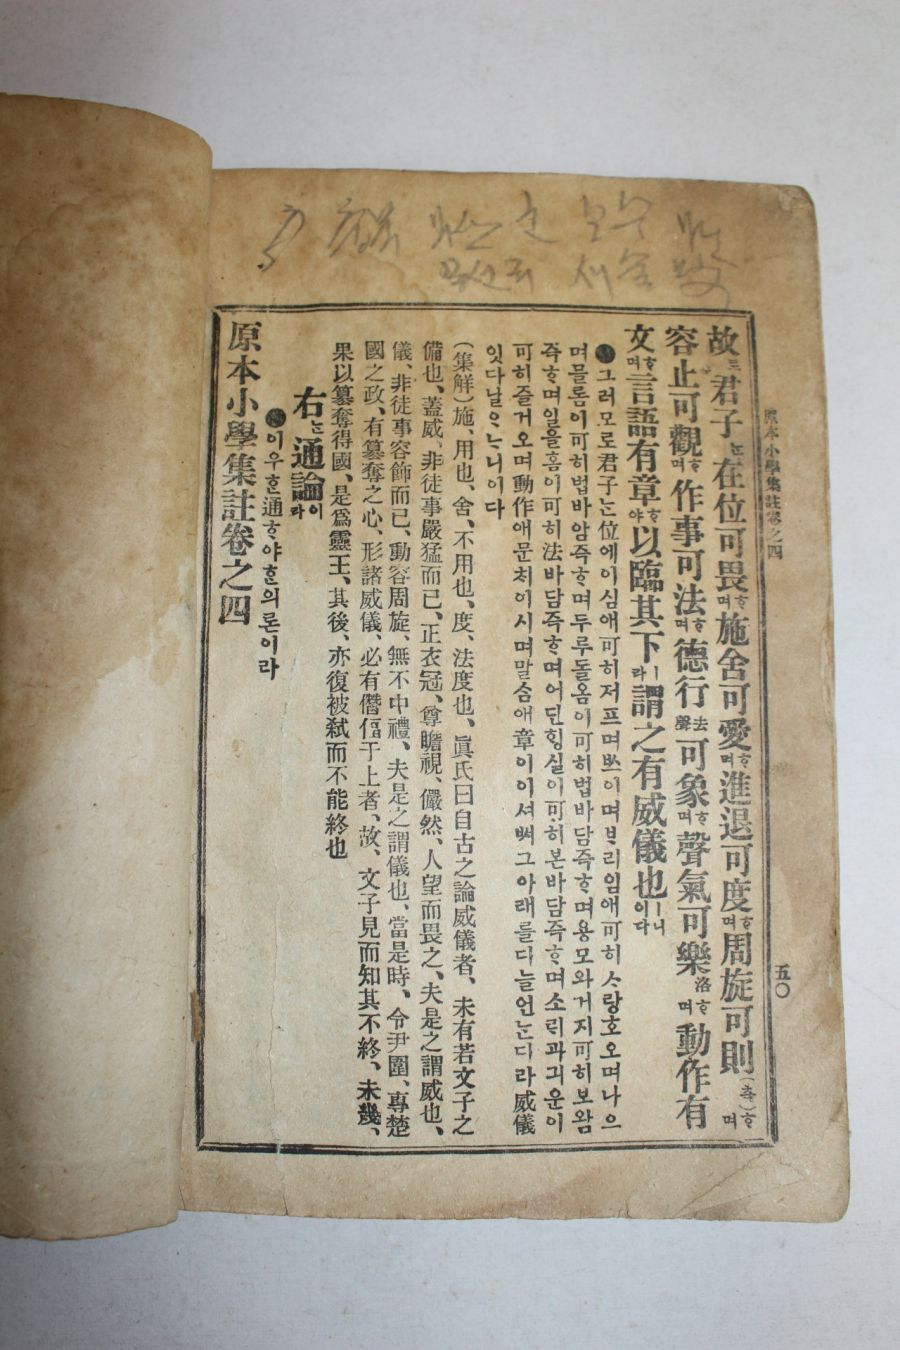 原本小學集註卷之四
五〇
故로君子는在位可畏ᄒᆞ며施舍可愛ᄒᆞ며進退可度ᄒᆞ며周旋可則(측)ᄒᆞ며
容止可觀ᄒᆞ며作事可法ᄒᆞ며德行去聲可象ᄒᆞ며聲氣可樂洛ᄒᆞ며動作有
文ᄒᆞ며言語有章ᄒᆞ야以臨其下ㅣ라謂之有威儀也ㅣ니이다
그러모로君子ᄂᆞᆫ位에이심애可히저프며ᄡᅳ이며ᄇᆞ리임애可히ᄉᆞ랑호오며나으
며믈롬이可히법바담즉ᄒᆞ며두루돌옴이可히법바담즉ᄒᆞ며용모와거지可히보왐
즉ᄒᆞ며일을홈이可히法바담즉ᄒᆞ며어딘ᄒᆡᆼ실이可히본바담즉ᄒᆞ며소ᄅᆡ과긔운이
可히즐거오며動作애문ᄎᆡ이시며말ᄉᆞᆷ애章이이셔ᄡᅥ그아래를디늘언ᄂᆞᆫ디라威儀
잇다닐으ᄂᆞ니이다
(集解)施、用也、舍、不用也、度、法度也、眞氏曰自古之論威儀者、未有若文子之
備也、蓋威、非徒事嚴猛而已、正衣冠、尊瞻視、儼然、人望而畏之、夫是之謂威也、
儀、非徒事容飾而已、動容周旋、無不中禮、夫是之謂儀也、當是時、令尹圍、專楚
國之政、有簒奪之心、形諸威儀、必有僭偪于上者、故、文子見而知其不終、未幾、
果以簒奪得國、是爲靈王、其後、亦復被弑而不能終也
右는通論이라
이우흔通ᄒᆞ야ᄒᆞᆫ의론이라
原本小學集註卷之四